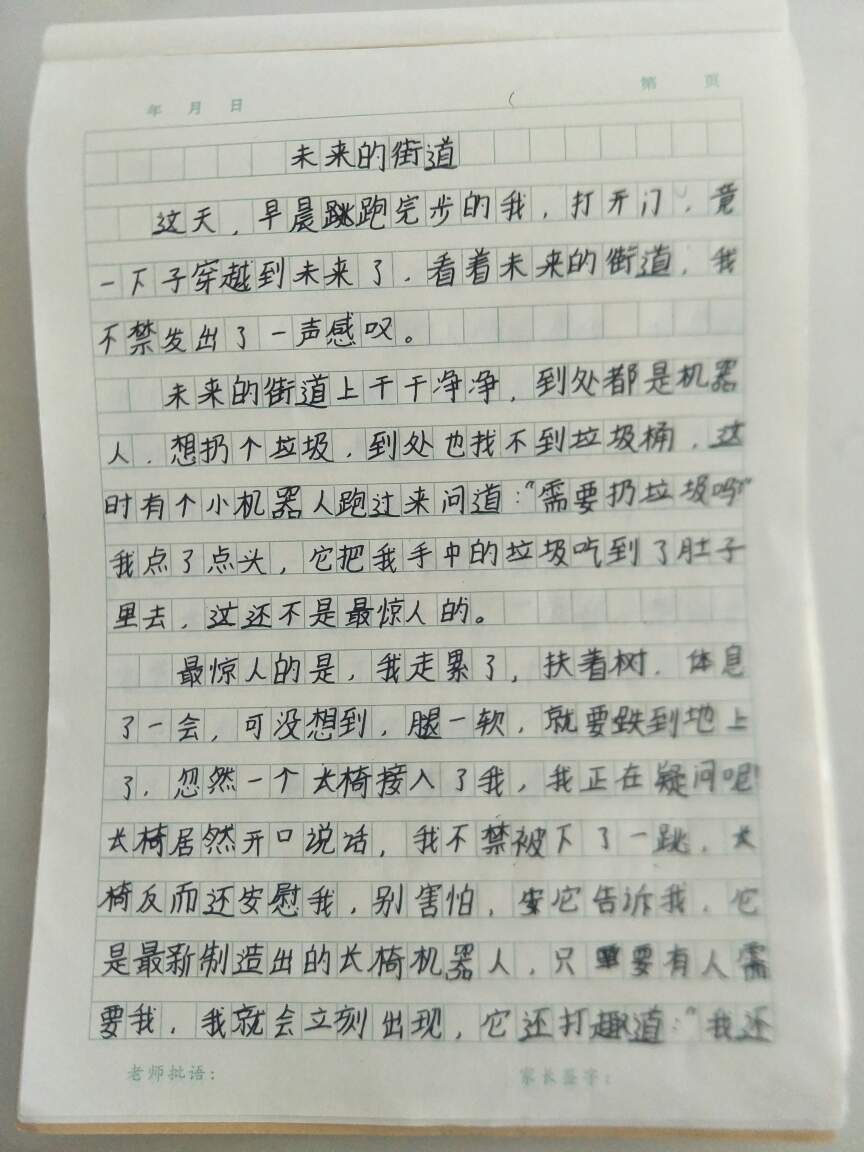 年 月 日
第 页
未来的街道
这天，早晨跳跑完步的我，打开门，竟
一下子穿越到未来了，看着未来的街道，我
不禁发出了一声感叹。
未来的街道上干干净净，到处都是机器
人，想扔个垃圾，到处也找不到垃圾桶，这
时有个小机器人跑过来问道："需要扔垃圾吗？"
我点了点头，它把我手中的垃圾吃到了肚子
里去，这还不是最惊人的。
最惊人的是，我走累了，扶着树，体息
了一会，可没想到，腿一软，就要跌到地上
了，忽然一个长椅接入了我，我正在疑问呢！
长椅居然开口说话，我不禁被下了一跳，长
椅反而还安慰我，别害怕，它告诉我，它
是最新制造出的长椅机器人，只要有人需
要我，我就会立刻出现，它还打趣道："我还
老师批语：
家长签字：